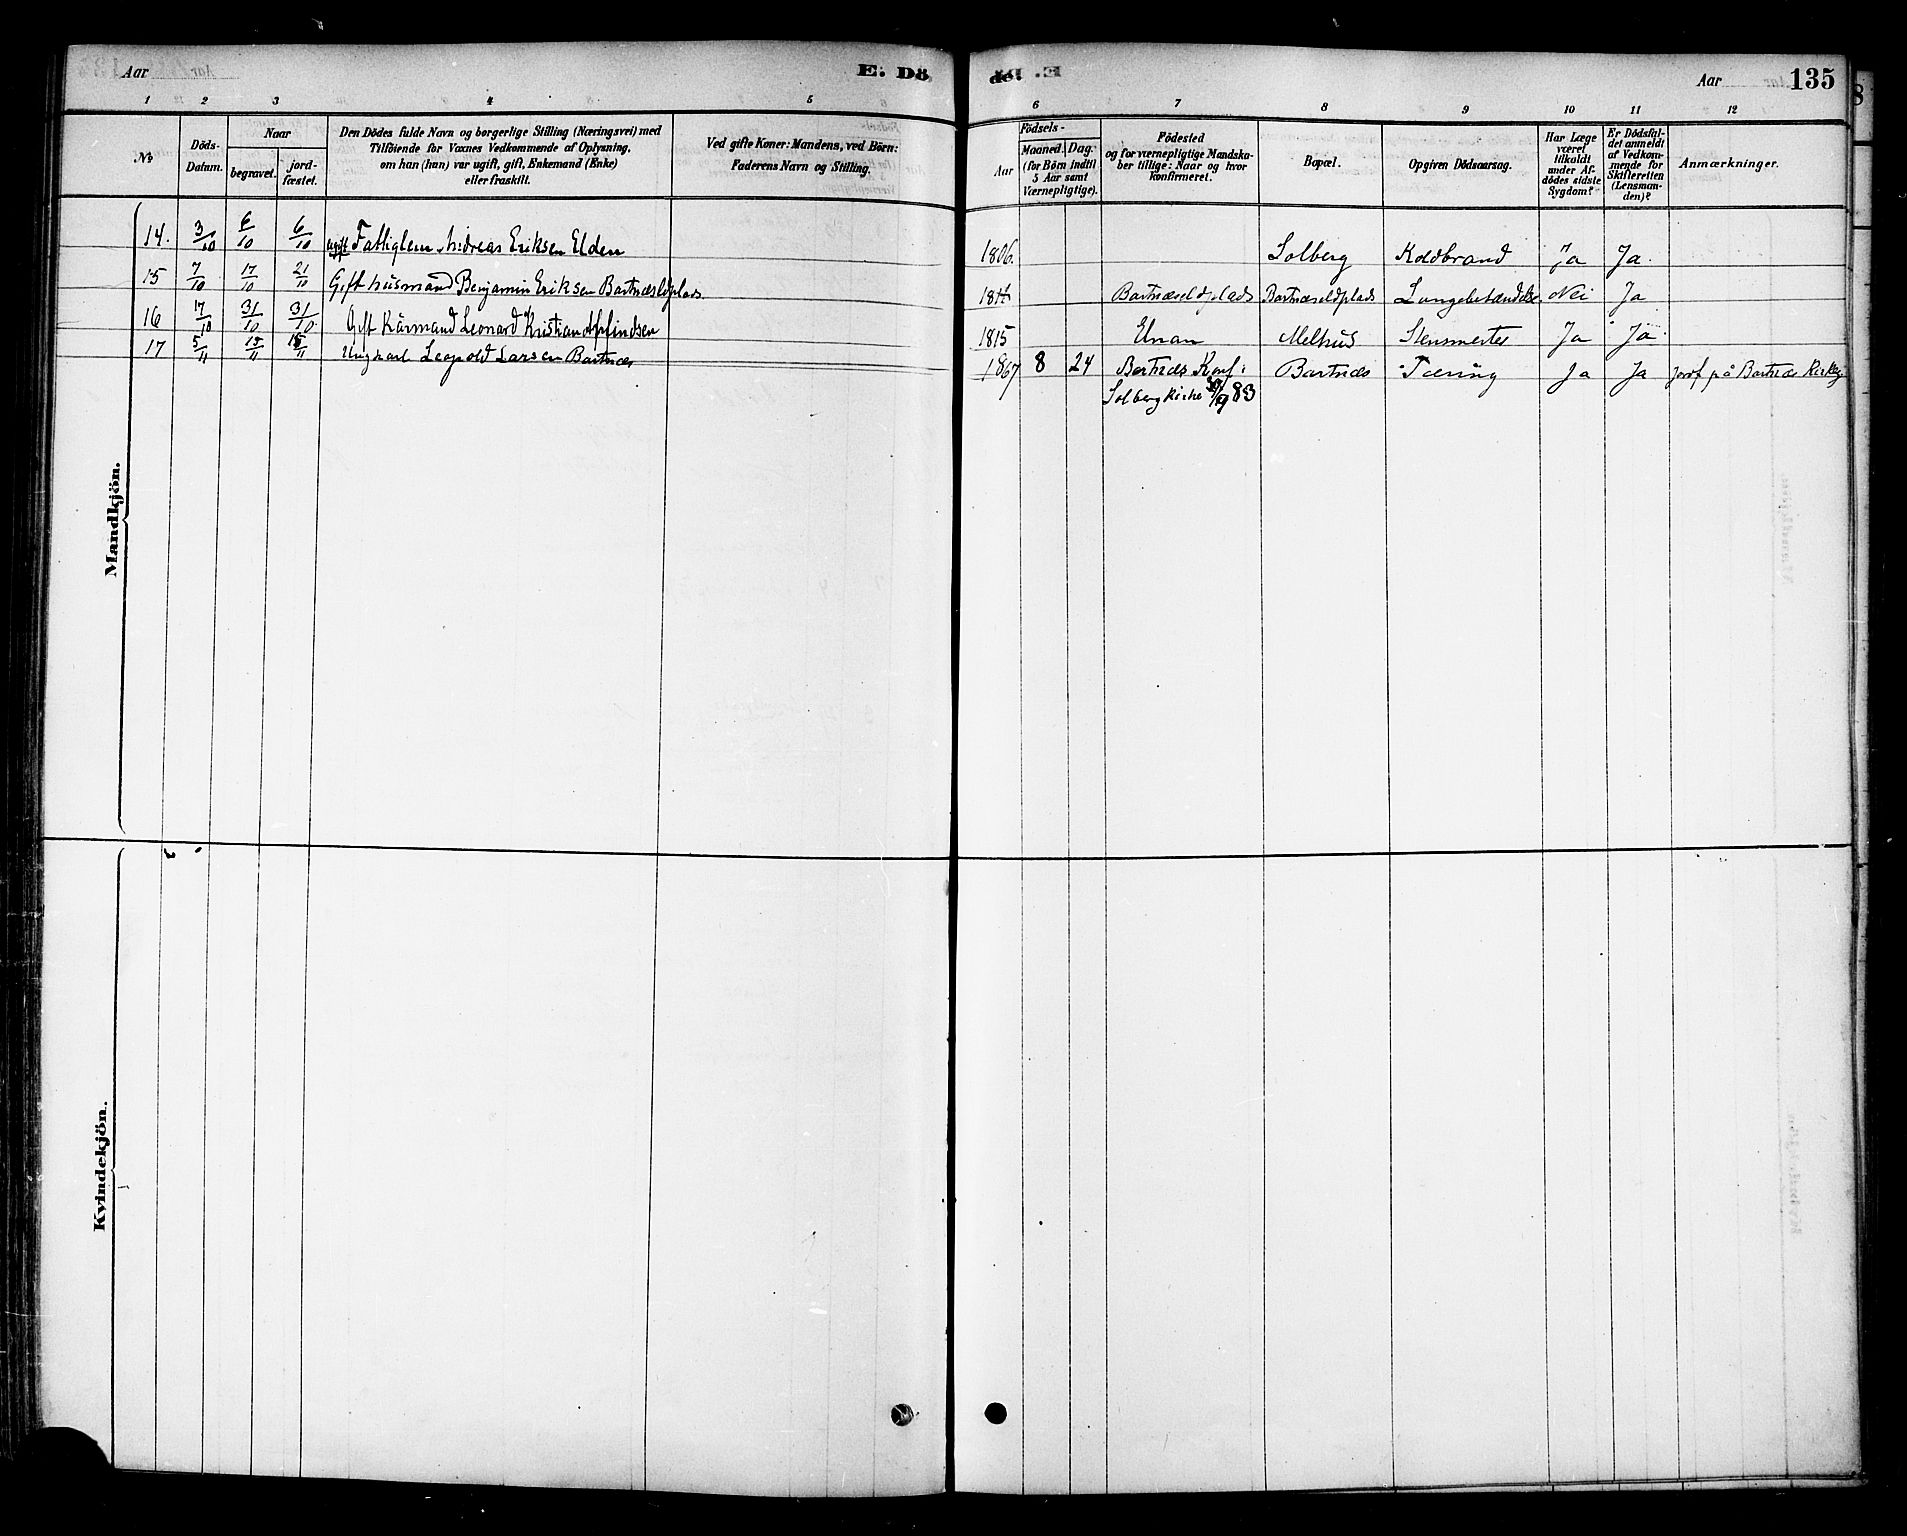 Aar E. Dö- de. Aar 135
1 2 3 4 5 6 7 8 9 10 11 12
No
Döds-Datum.
Naar
begravet.
jord-fæstet.
Den Dödes fulde Navn og borgerlige Stilling (Næringsvei) med
Tilföiende for Voxnes Vedkommende af Oplysning,
om han (hun) var ugift, gift, Enkemand (Enke)
eller fraskilt.
Ved gifte Koner: Mandens, ved Börn:
Faderens Navn og Stilling.
Födsels-
Aar
Maaned.
Dag.
(for Börn indtil
5 Aar samt
Værnepligtige).
Födested
og for værnepligtige Mandska-
ber tillige: Naar og hvor
konfirmeret.
Bopæl.
Opgiven Dödsaarsag.
Har Læge
været
tilkaldt
under Af-
dödes sidste
Sygdom?
Er Dödsfal-
det anmeldt
af Vedkom-
mende for
Skifteretten
(Lensman-
den)?
Anmærkninger.
Mandkjön.
14. 3/10 6/10 6/10 ugift Fattiglem Andreas Eriksen Elden 1806. Solberg Koldbrand Ja Ja.
15 7/10 17/10 21/10 Gift husmand Benjamin Eriksen Bartnæseldplads Bartnæseldplads Bartnæseldplads Lungebetændelse Nei Ja
16 17/10 31/10 31/10. Gift Kårmand Leonard Kristian 1815 Elnan Melhus Ja Ja
17 5/11 15/11 15/11 Ungkarl Leopold Larsen Bartnæs 1867 8 24 Bartnæs Konf: Bartnæs Tæring Ja Ja Jordf på Bartnæs Kirkeg.
Solberg kirke 30/9 83
Kvindekjön.